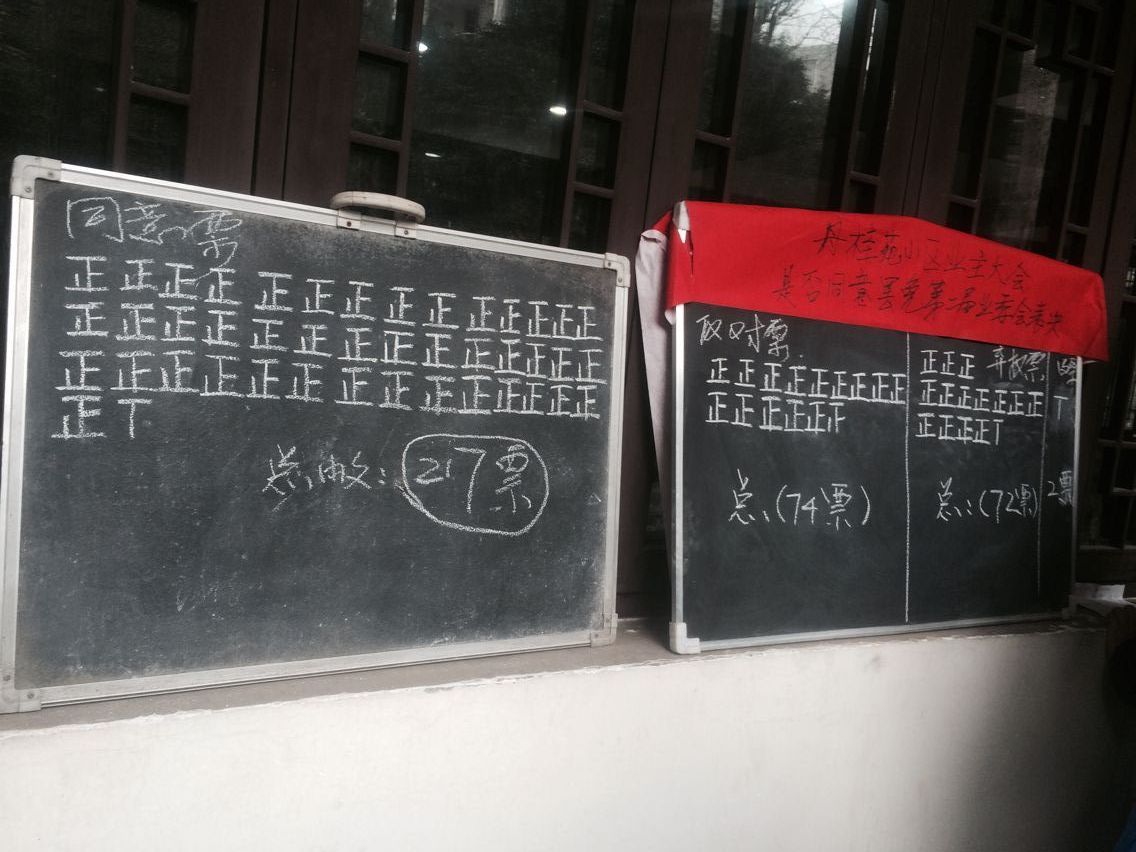 苑小区业主大会
是否同意罢免第二届业委会表决
同意票
正正正正正正正正正正正正正正
正正正正正正正正正正正正正正
正正正正正正正正正正正正正正
正T
总数:217票
反对票
正正正正正正正正
正正正正正正
总:(74票)
正正正 弃权票
正正正正正正正
正正正正T
总:(72票)
T
2票